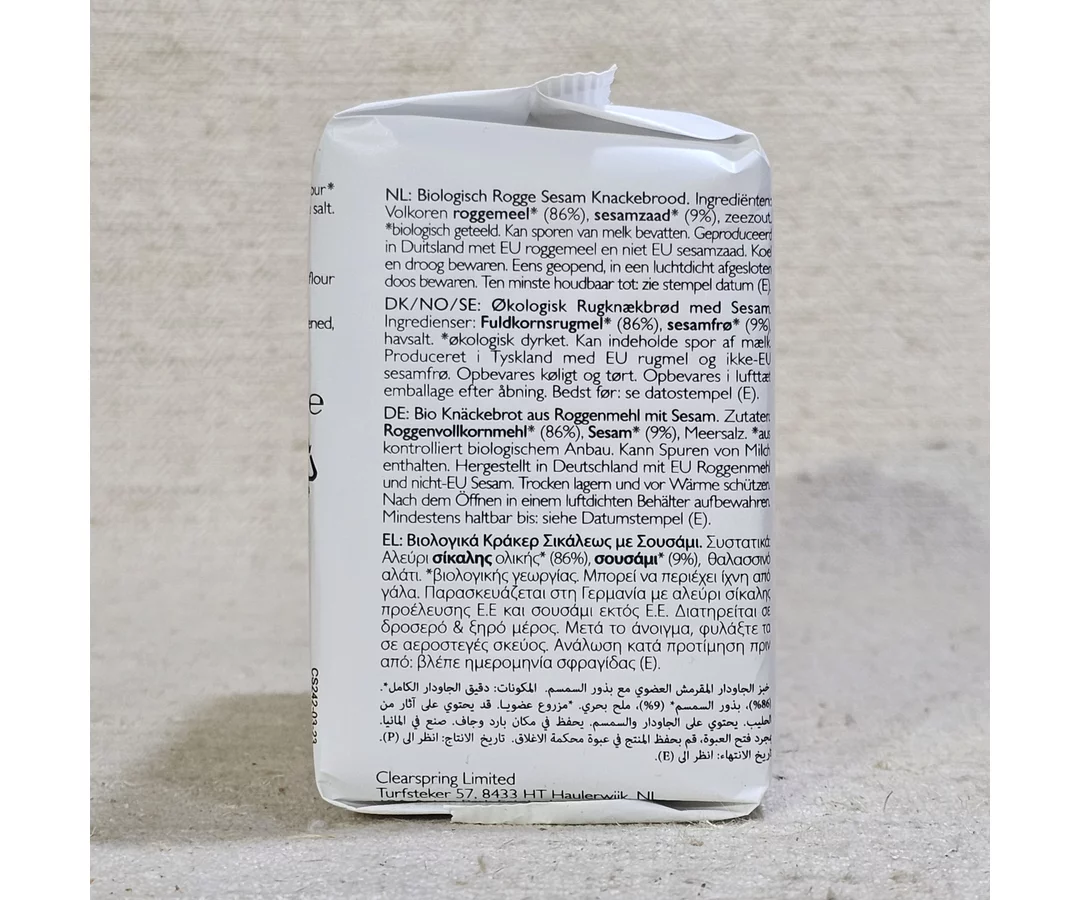 our*
salt.
flour
ened,
e
CS242-03-23
NL: Biologisch Rogge Sesam Knackebrood. Ingrediënten:
Volkoren roggemeel* (86%), sesamzaad* (9%), zeezout.
*biologisch geteeld. Kan sporen van melk bevatten. Geproduceerd
in Duitsland met EU roggemeel en niet EU sesamzaad. Koel
en droog bewaren. Eens geopend, in een luchtdicht afgesloten
doos bewaren. Ten minste houdbaar tot: zie stempel datum (E).
DK/NO/SE: Økologisk Rugknækbrød med Sesam.
Ingredienser: Fuldkornsrugmel* (86%), sesamfrø* (9%),
havsalt. *økologisk dyrket. Kan indeholde spor af mælk.
Produceret i Tyskland med EU rugmel og ikke-EU
sesamfrø. Opbevares køligt og tørt. Opbevares i lufttæt
emballage efter åbning. Bedst før: se datostempel (E).
DE: Bio Knäckebrot aus Roggenmehl mit Sesam. Zutaten:
Roggenvollkornmehl* (86%), Sesam* (9%), Meersalz. *aus
kontrolliert biologischem Anbau. Kann Spuren von Milch
enthalten. Hergestellt in Deutschland mit EU Roggenmehl
und nicht-EU Sesam. Trocken lagern und vor Wärme schützen.
Nach dem Öffnen in einem luftdichten Behälter aufbewahren.
Mindestens haltbar bis: siehe Datumstempel (E).
EL: Βιολογικά Κράκερ Σικάλεως με Σουσάμι. Συστατικά:
Αλεύρι σίκαλης ολικής* (86%), σουσάμι* (9%), θαλασσινό
αλάτι. *βιολογικής γεωργίας. Μπορεί να περιέχει ίχνη από
γάλα. Παρασκευάζεται στη Γερμανία με αλεύρι σίκαλης
προέλευσης Ε.Ε και σουσάμι εκτός Ε.Ε. Διατηρείται σε
δροσερό & ξηρό μέρος. Μετά το άνοιγμα, φυλάξτε το
σε αεροστεγές σκεύος. Ανάλωση κατά προτίμηση πριν
από: βλέπε ημερομηνία σφραγίδας (Ε).
خبز الجاودار المقرمش العضوي مع بذور السمسم. المكونات: دقيق الجاودار الكامل*.
(86%)، بذور السمسم* (9%)، ملح بحري. *مزروع عضويا. قد يحتوي على آثار من
الحليب. يحتوي على الجاودار والسمسم. يحفظ في مكان بارد وجاف. صنع في المانيا.
بمجرد فتح العبوة، قم بحفظ المنتج في عبوة محكمة الاغلاق. تاريخ الانتاج: انظر الى (P).
تاريخ الانتهاء: انظر الى (E).
Clearspring Limited
Turfsteker 57, 8433 HT Haulerwijk, NL